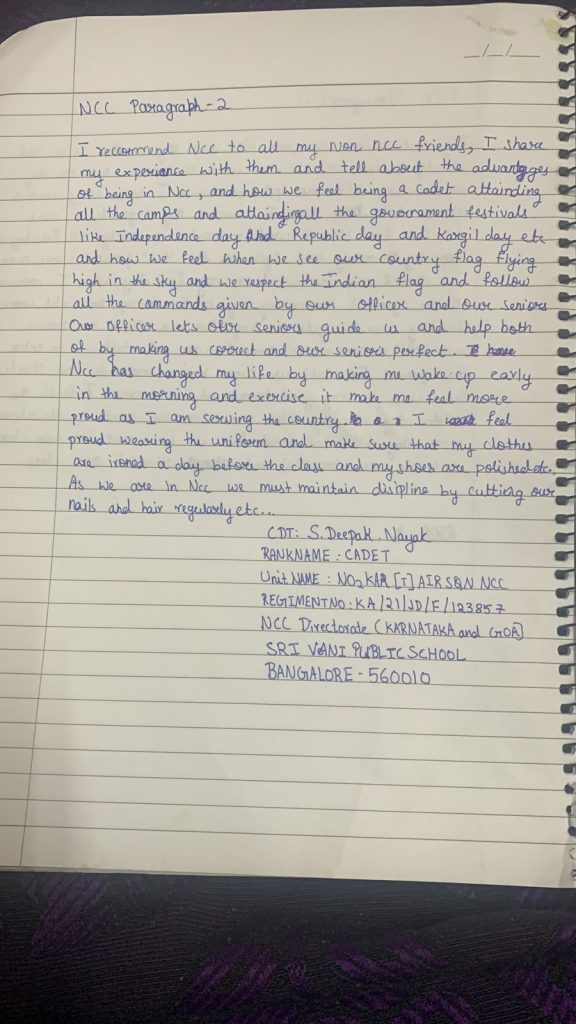 _/_/_
NCC Paragraph-2
I reccommend Ncc to all my Non ncc friends, I share
my experiance with them and tell about the advantgges
of being in Ncc, and how we feel being a cadet attainding
all the camps and attaindingall the governament festivals
like Independence day And Republic day and Kargil day etc
and how we feel when we see our country flag flying
high in the sky and we respect the Indian flag and follow
all the commands given by our officer and our seniors
Our officer lets our seniors guide us and help both
of by making us correct and our seniors perfect.
Ncc has changed my life by making me wake cup early
in the morning and exercise it make me feel more
proud as I am serving the country. I feel
proud wearing the uniform and make sure that my clothes
are ironed a day before the class and my shoes are polished etc.
As we are in Ncc we must maintain disipline by cutting our
nails and hair regularly etc...
CDT: S. Deepak. Nayak
RANKNAME : CADET
Unit NAME : NO2 KAR [T] AIR SQN NCC
REGIMENT NO: KA/21/JD/F/123857
NCC Directorate (KARNATAKA and GOA)
SRI VANI PUBLIC SCHOOL
BANGALORE - 560010